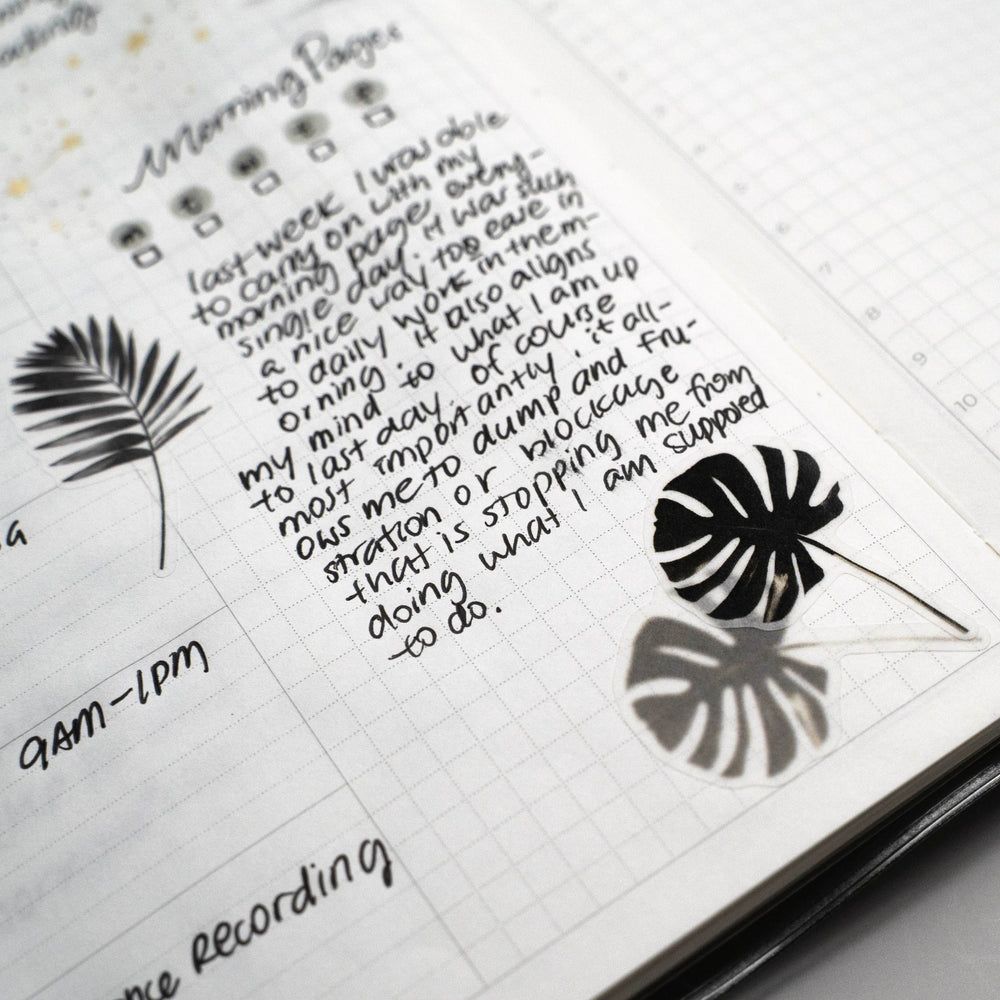 Morning Pages
M
T
W
T
F
last week I was able
to carry on with my
morning page, every-
single day. it was such
a nice way too ease in
to daily work in them-
orning. it also aligns
my mind to what I am up
to last day. of course
most importantly, it all-
ows me to dump and fru-
stration or blockage
that is stopping me from
doing what I am supposed
to do.
9AM-1PM
Recording
6
7
8
9
10